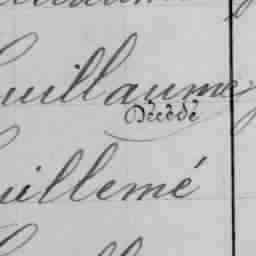 Guillaume
Décédé
Guillemé